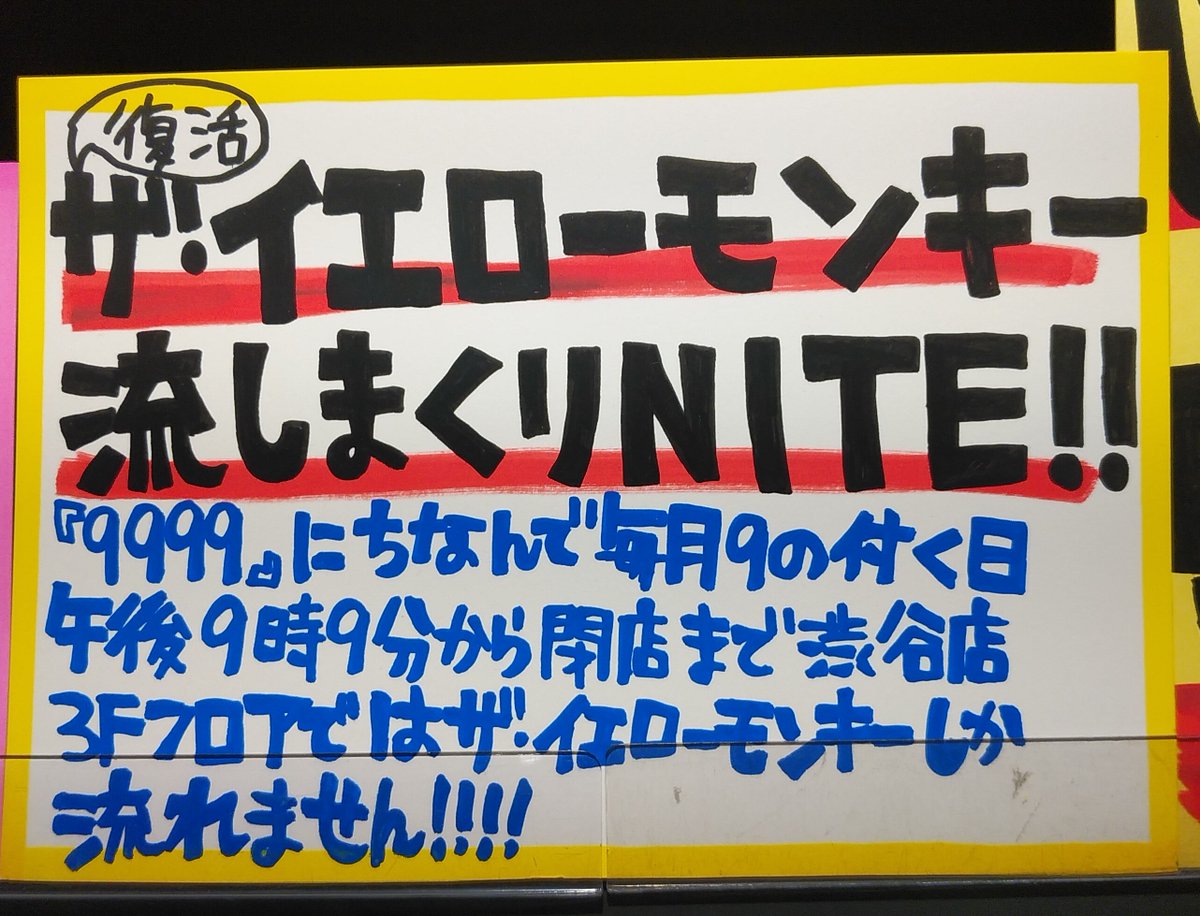 復活
ザ・イエローモンキー
流しまくりNITE!!
『9999』にちなんで毎月9の付く日
午後9時9分から閉店まで渋谷店
3Fフロアではザ・イエローモンキーしか
流れません!!!!